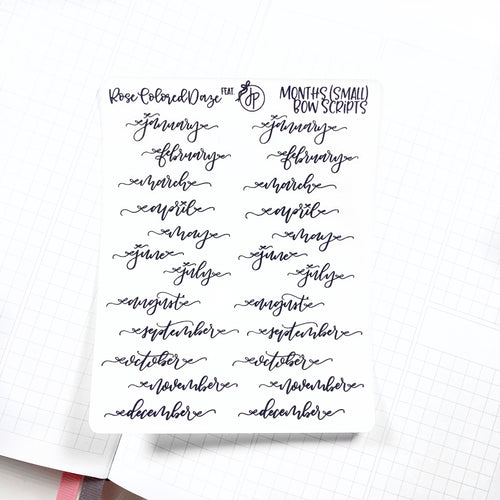 Rose Colored Daze FEAT. JP MONTHS (SMALL)
BOW SCRIPTS
january january
february february
march march
april april
may may
june june
july july
august august
september september
october october
november november
december december